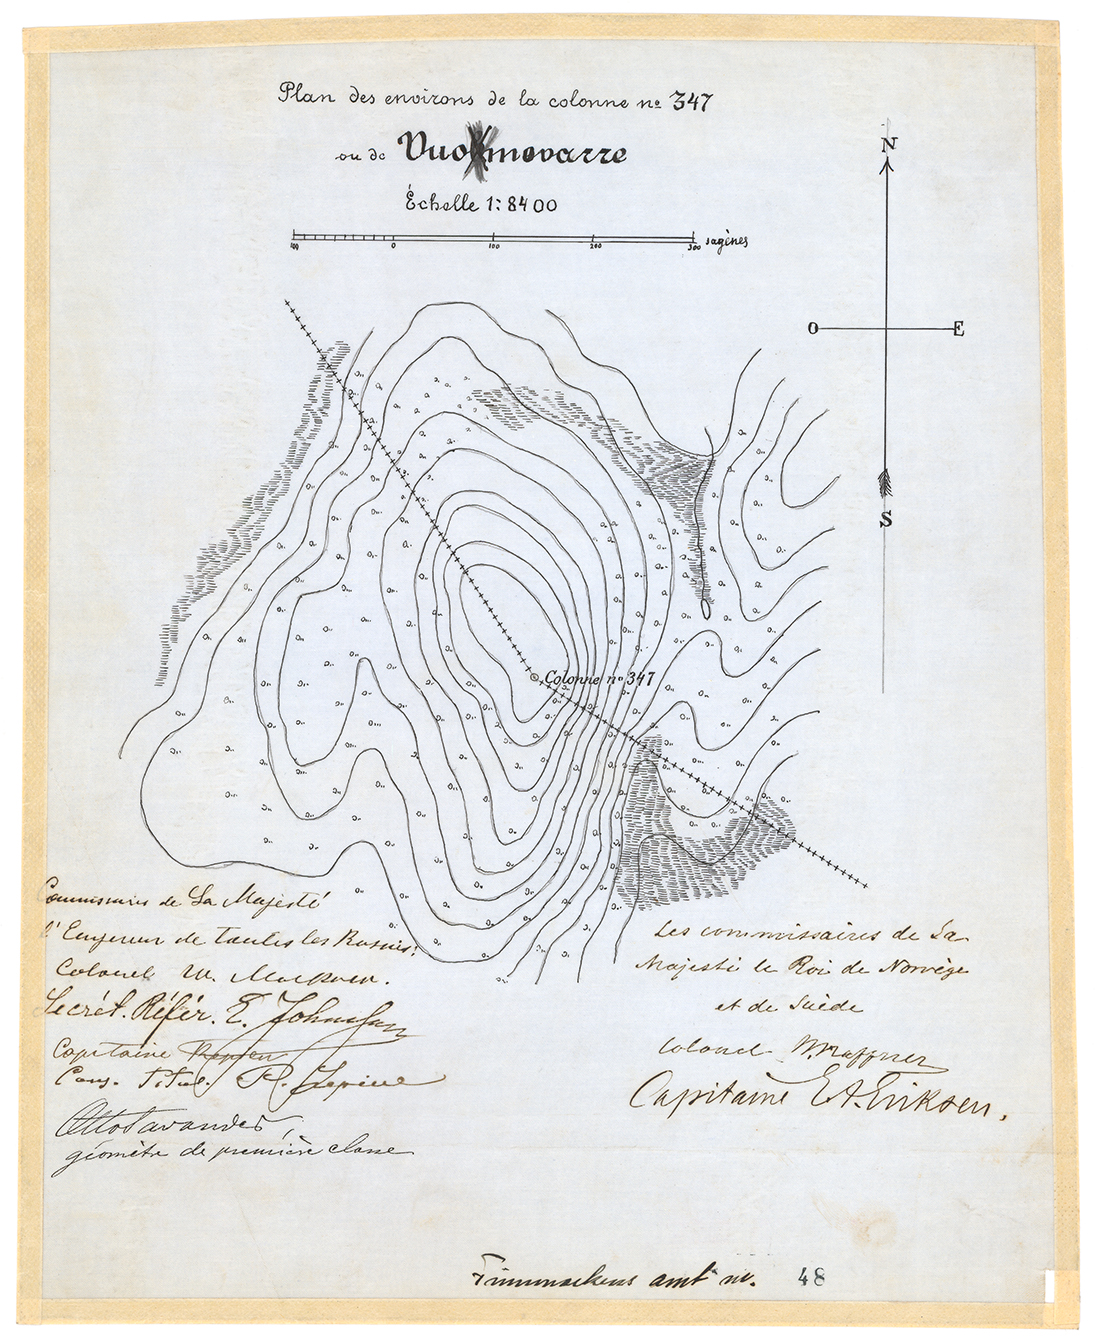 Plan des environs de la colonne no 347
ou de Vuomovarre
Échelle 1:8400
100 0 100 200 300 sagènes
N
O E
S
Colonne no 347
Commissaires de Sa Majesté
l'Empereur de toutes les Russies:
Colonel W.
Secrét. Référ. E. Johnsson
Capitaine
Cons. Titul. R.
géomètre de première classe
Les commissaires de Sa
Majesté le Roi de Norvège
et de Suède
Colonel
Capitaine E. A. Eriksen.
amt nr. 48